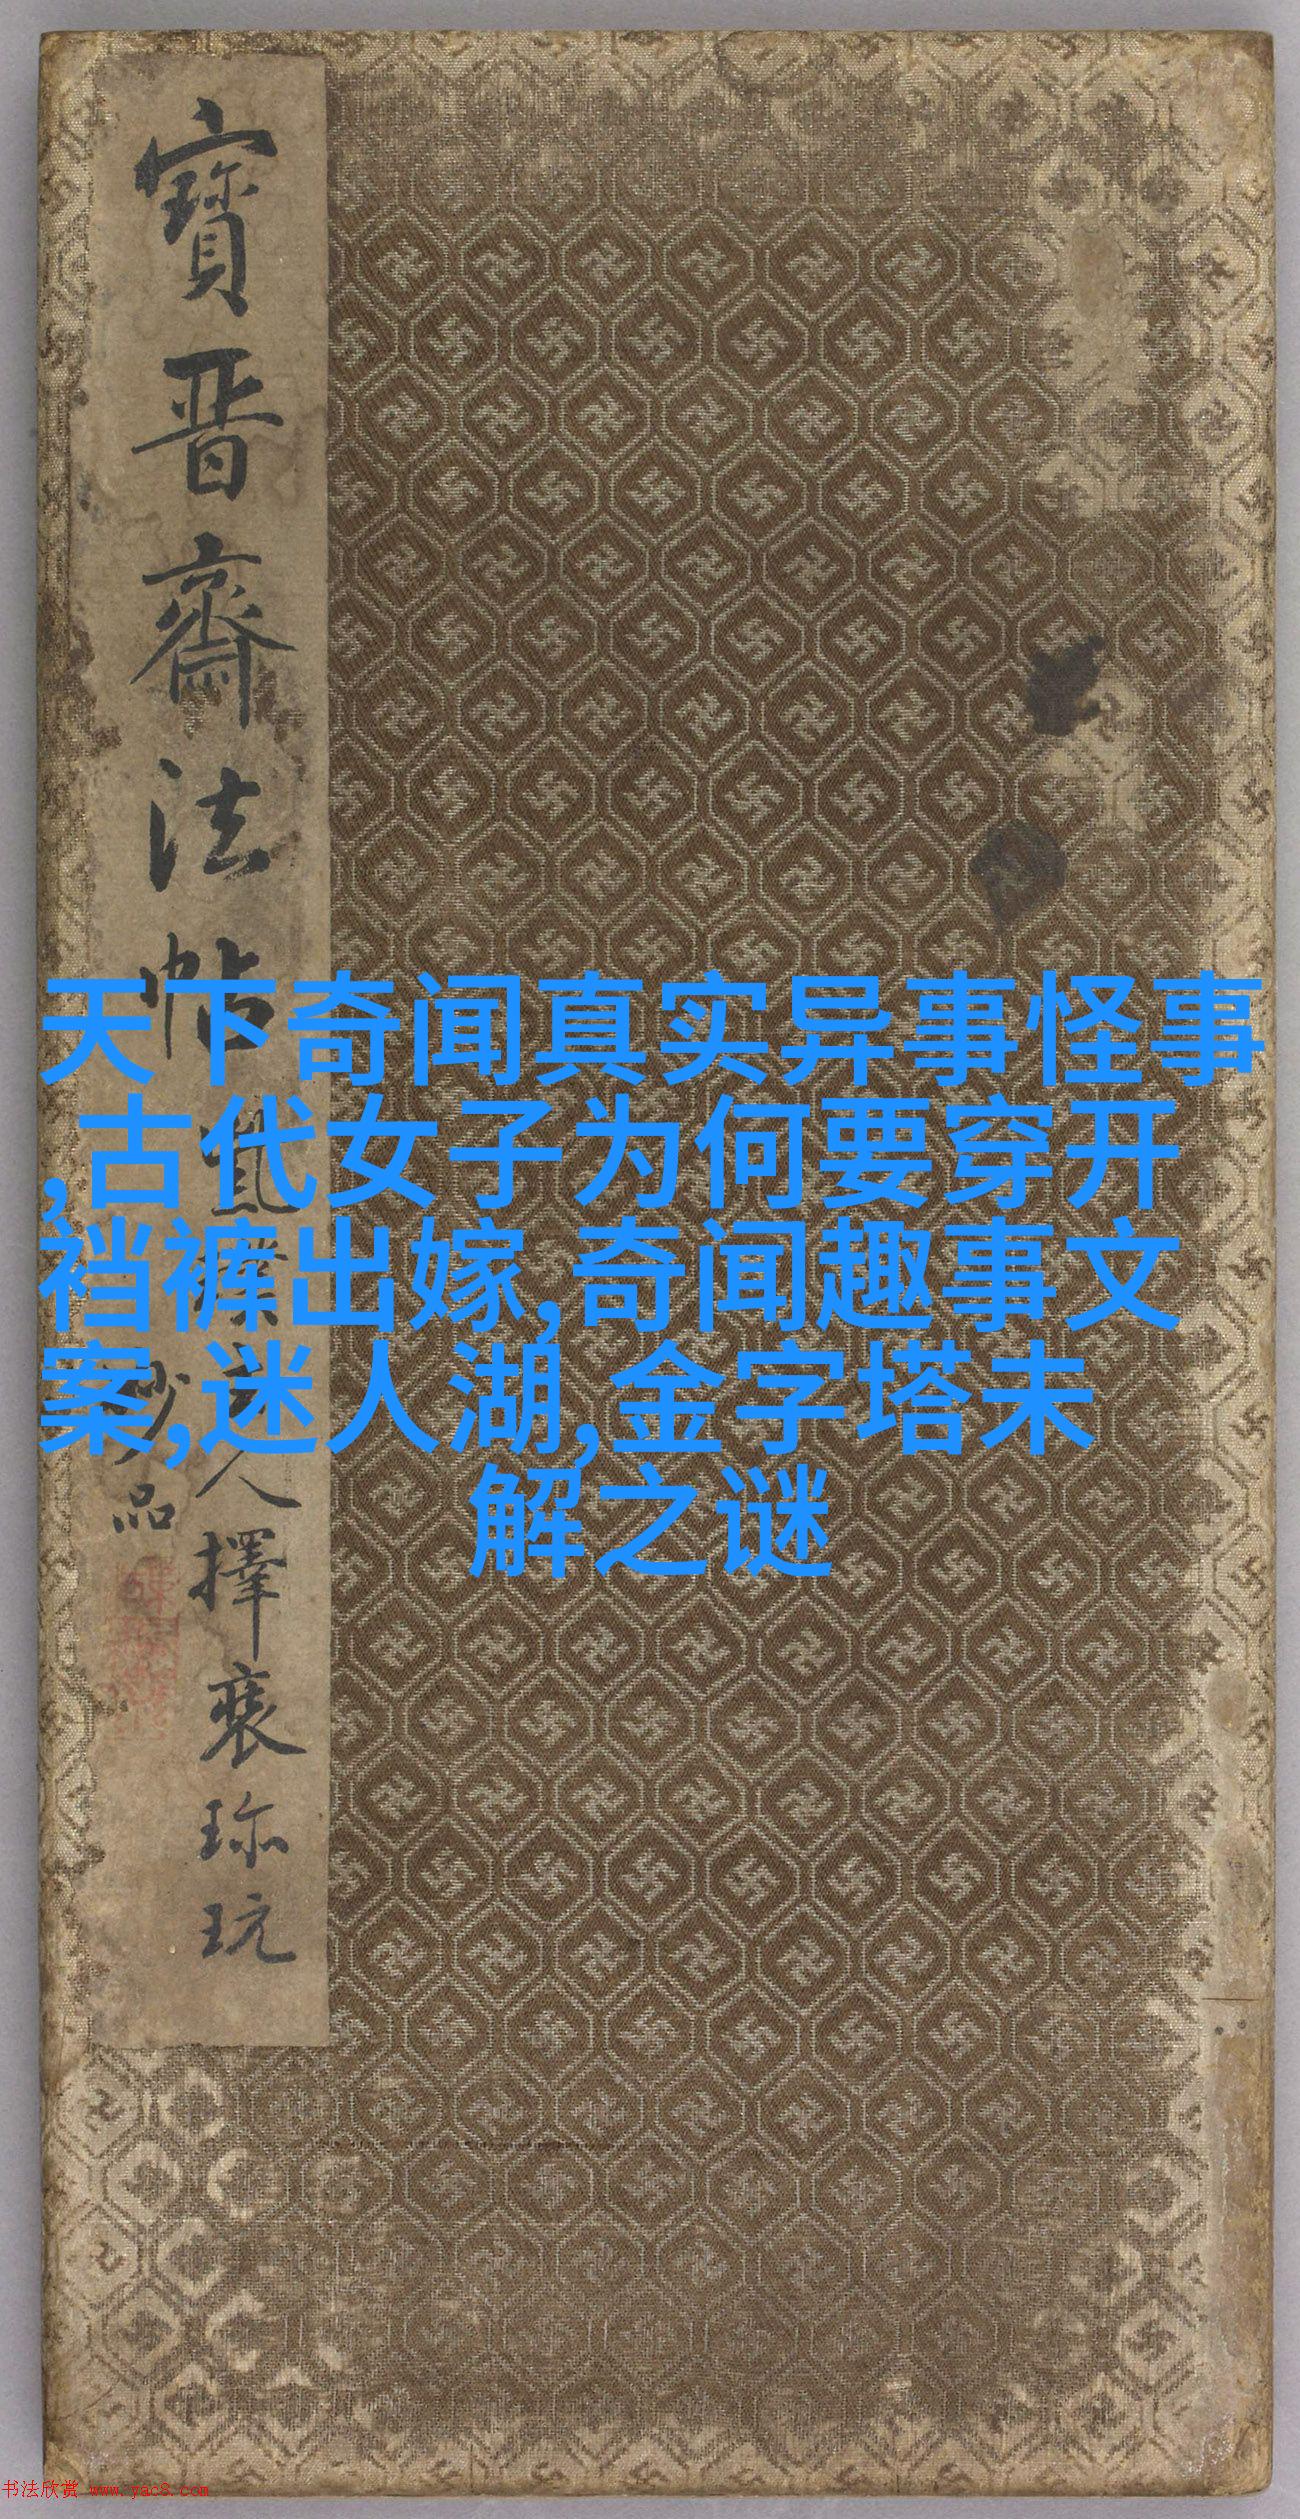 寳晋齋法帖
人擇裘珎玩
妙品
天下奇闻真实异事怪事
,古代女子为何要穿开
裆裤出嫁,奇闻趣事文
案,迷人湖,金字塔未
解之谜
书法欣赏 www.yac8.com